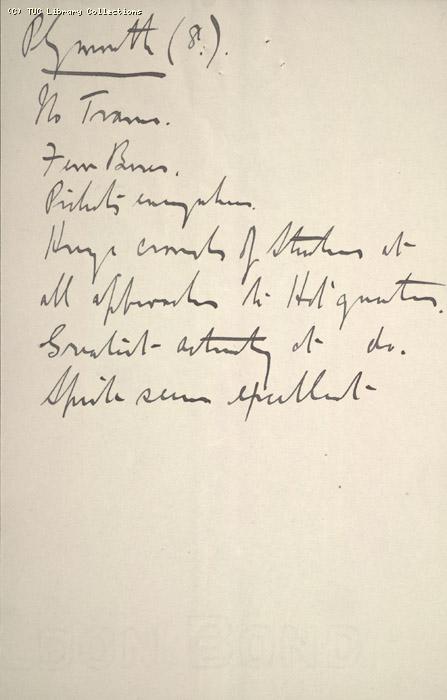 (C) TUC Library Collections
Plymouth (8.).
No Trams.
Few Buses.
Pickets everywhere.
Huge crowds of Strikers at
all approaches to Hd'quarters.
Greatest activity at do.
Spirit seems excellent
BOND